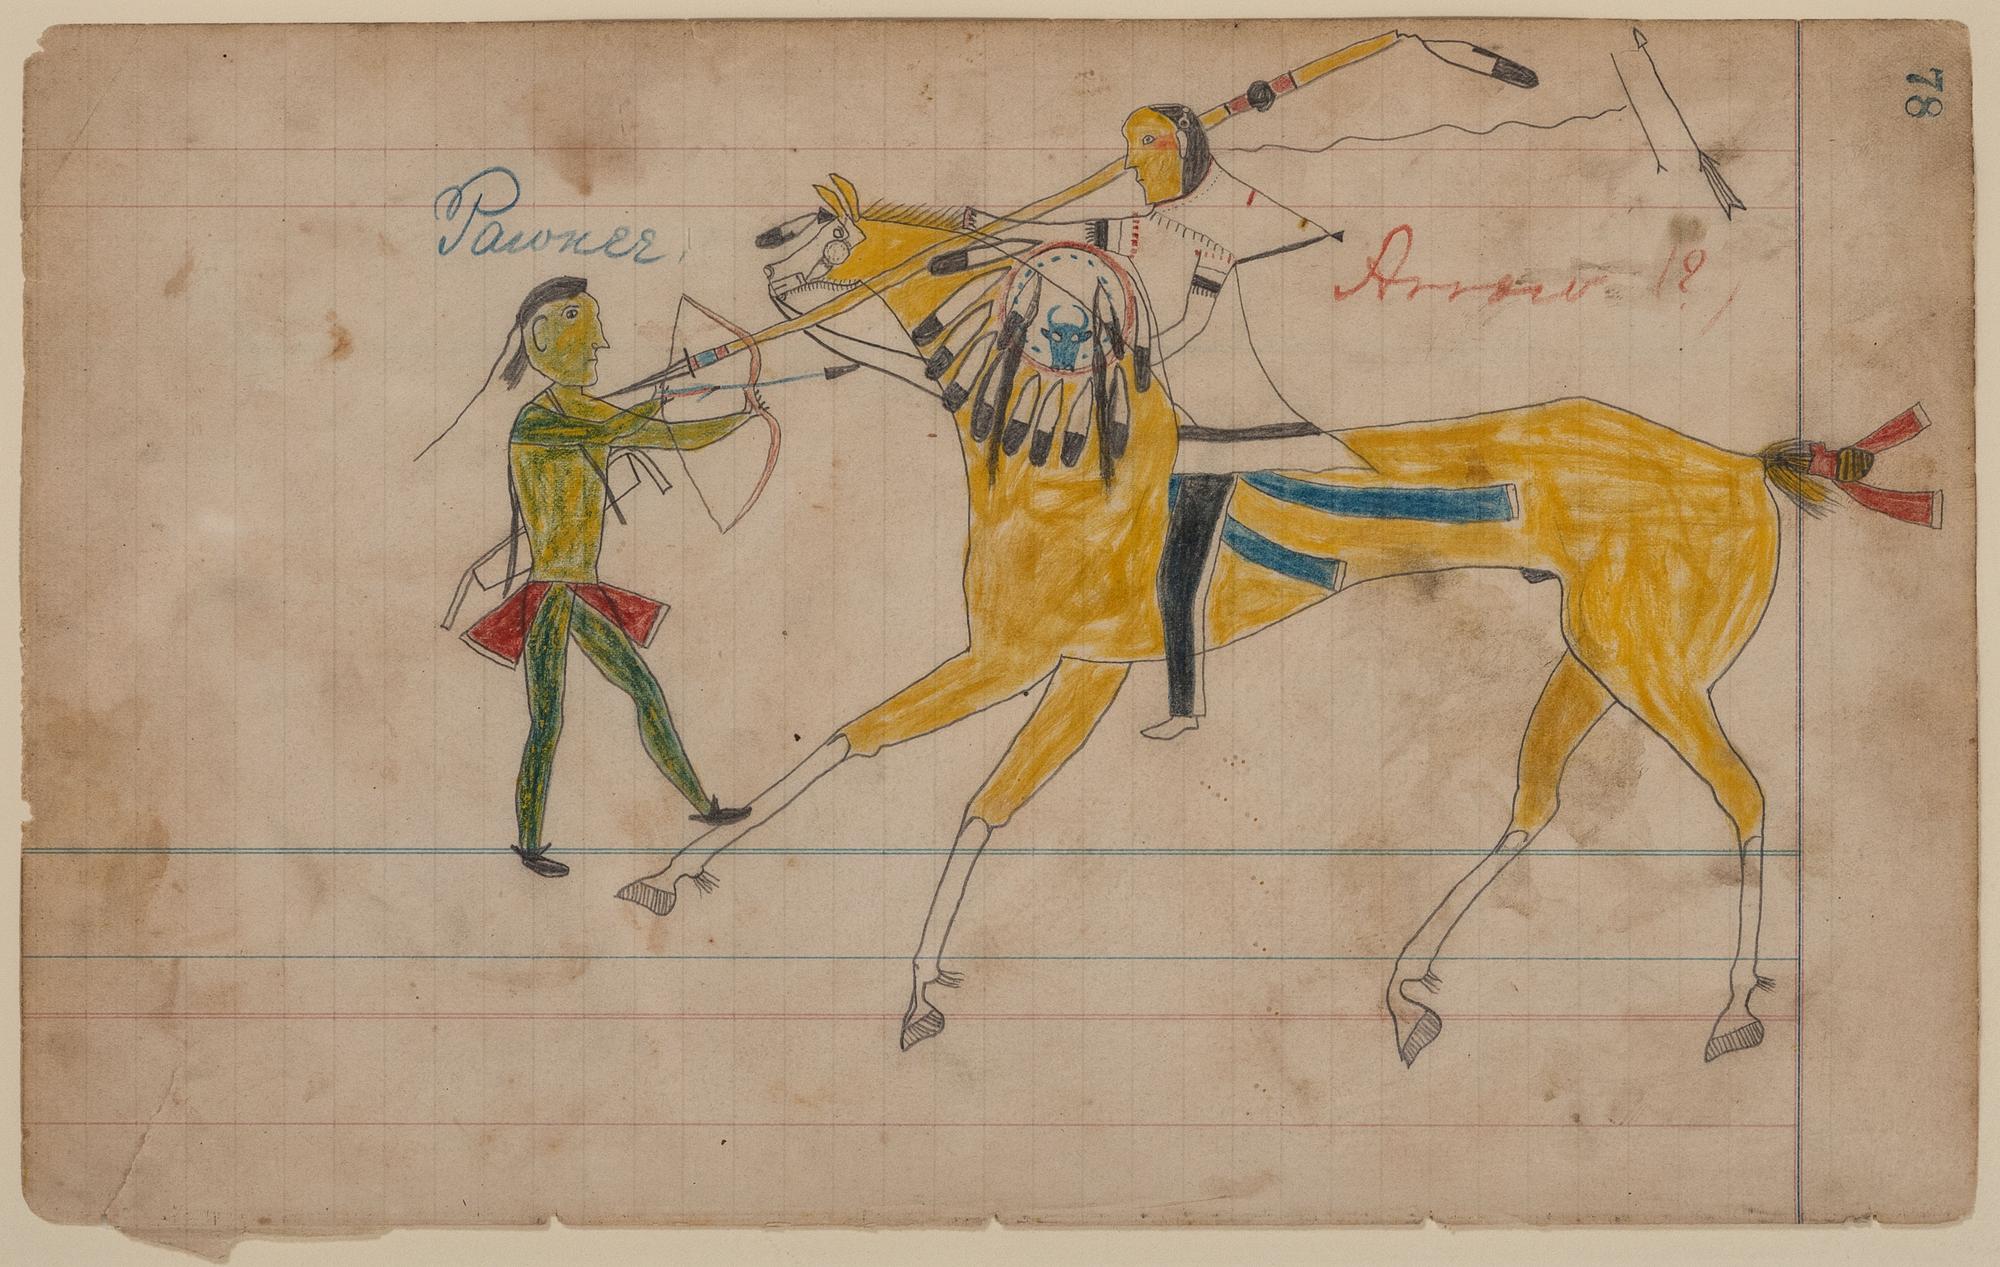 Pawnee.
Arrow
78